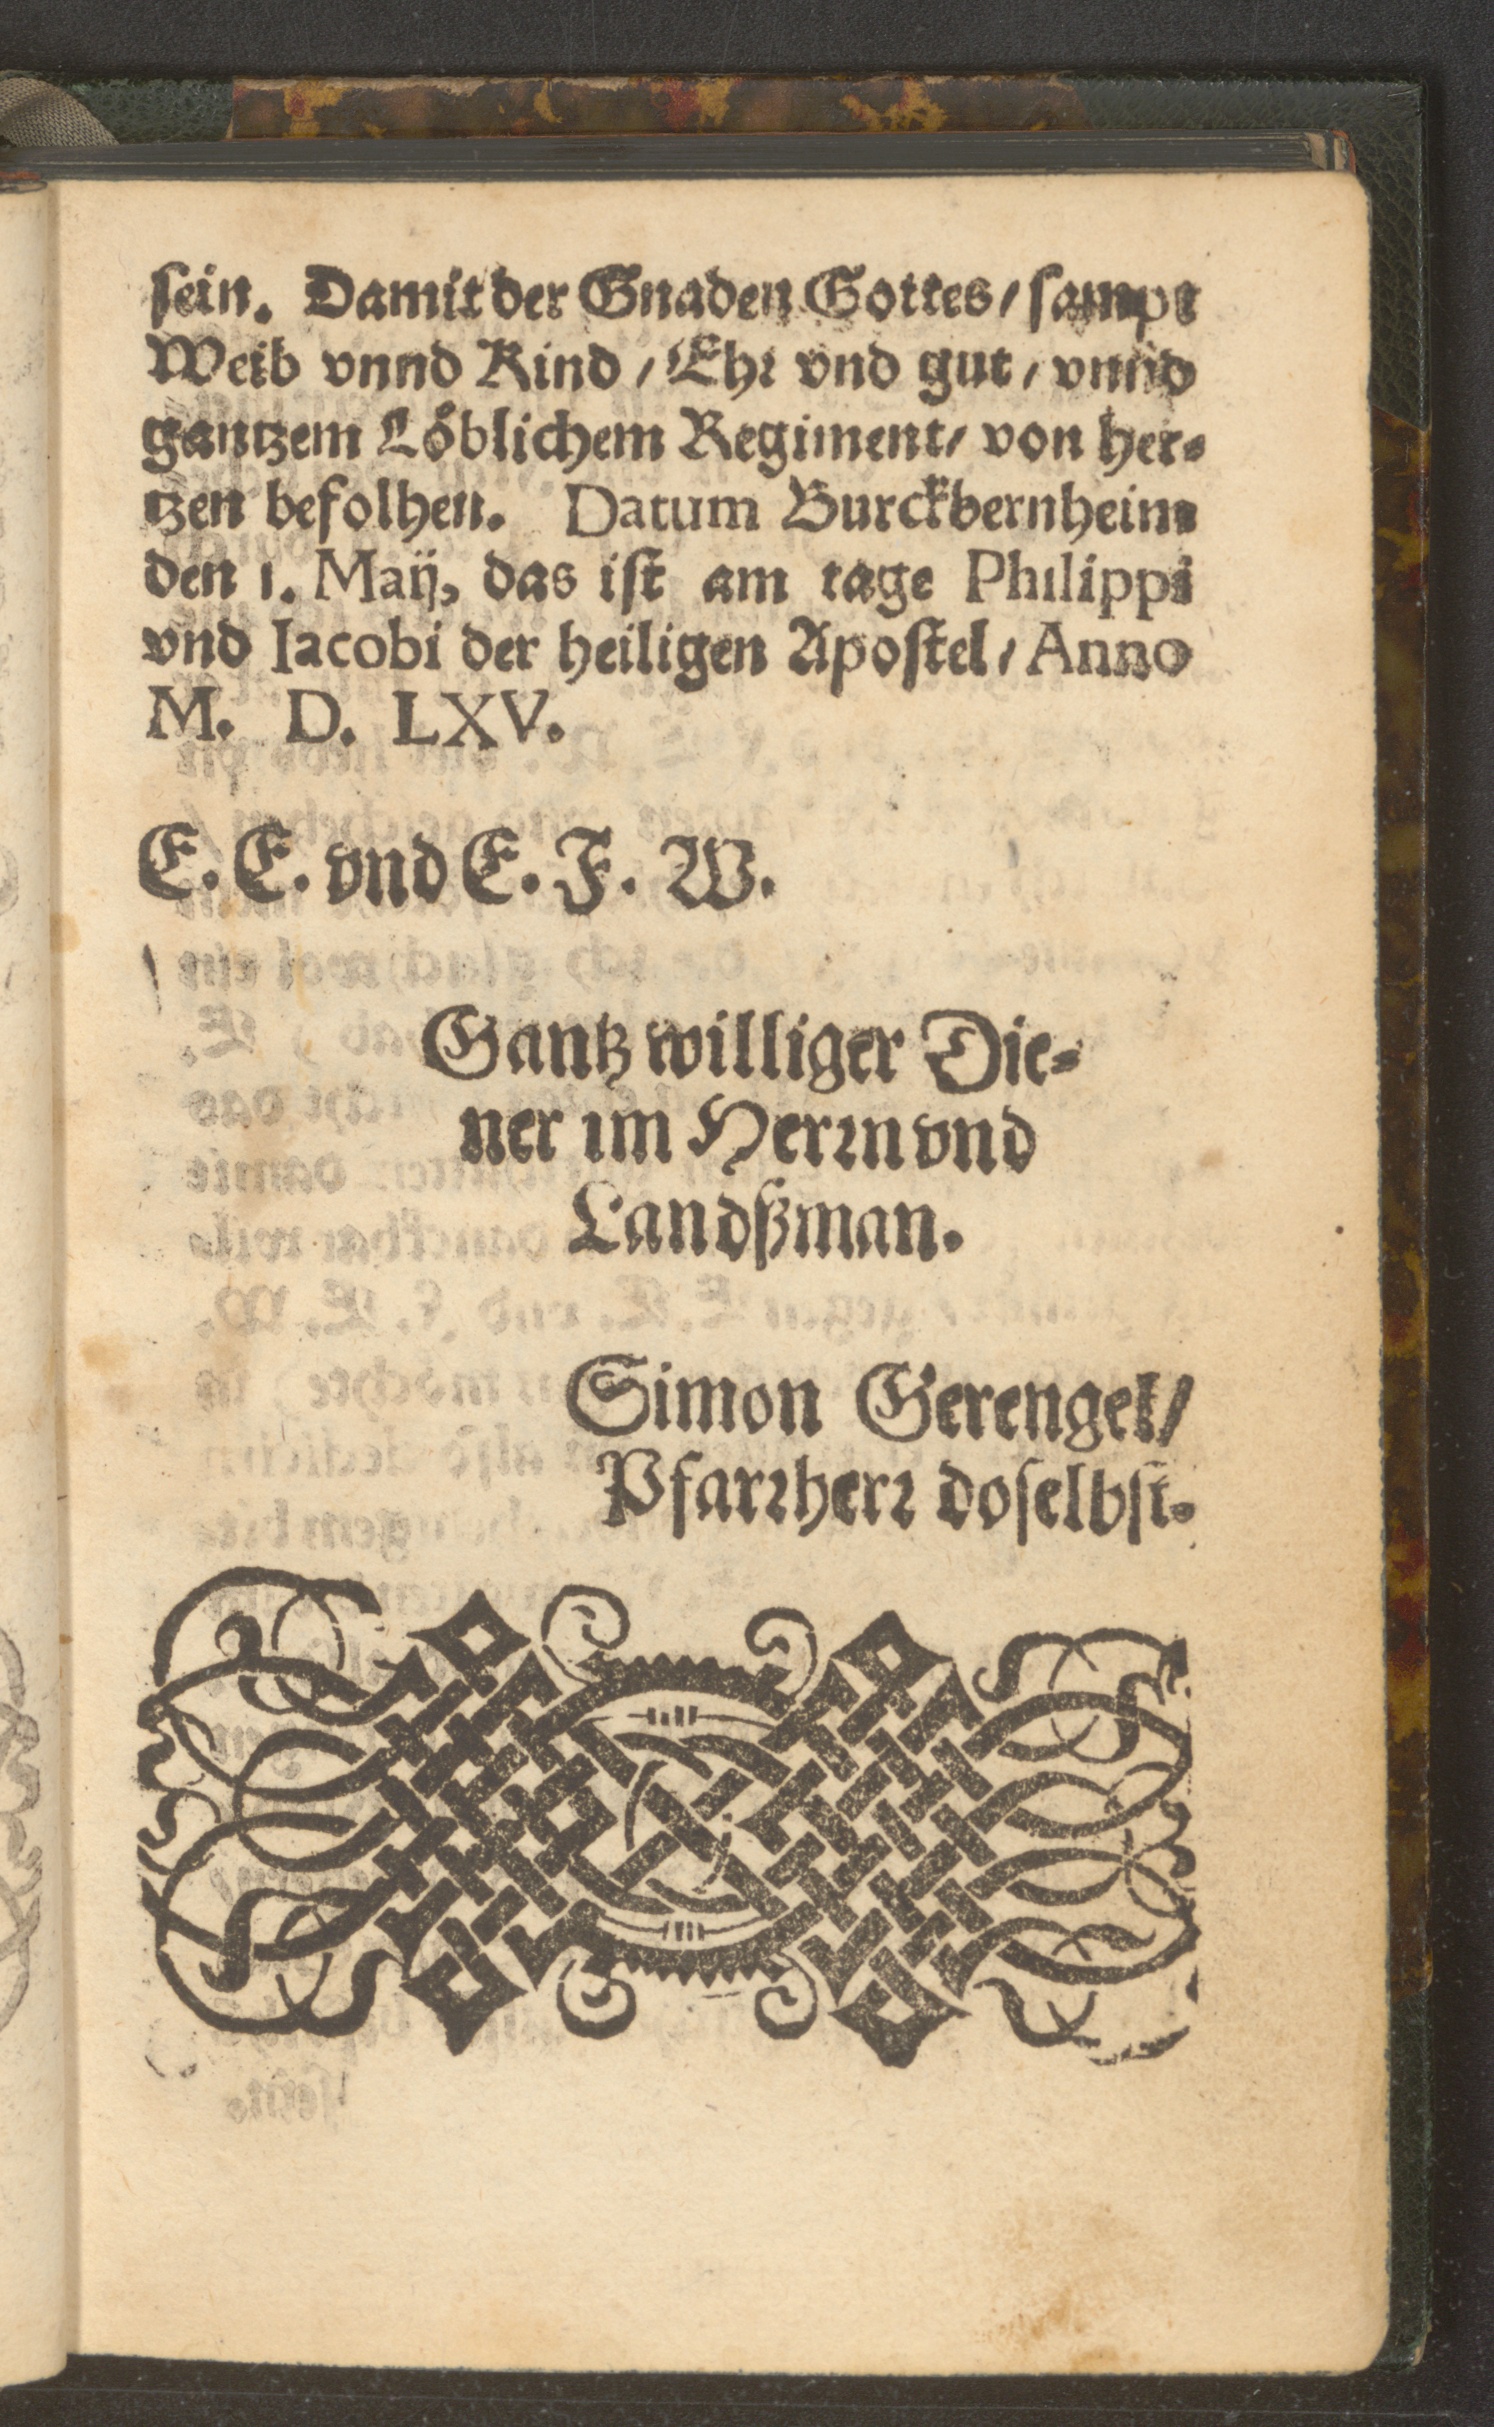 sein. Damit der Gnaden Gottes / sampt
Weib vnnd Kind / Ehr vnd gut / vnnd
gantzem Löblichem Regiment / von her⸗
tzen befolhen. Datum Burckbernheim
den 1. Maij, das ist am tage Philippi
vnd Iacobi der heiligen Apostel / Anno
M. D. LXV.
E. E. vnd E. F. W.
Gantz williger Die⸗
ner im Herrn vnd
Landßman.
Simon Gerengel /
Pfarrherr doselbst.